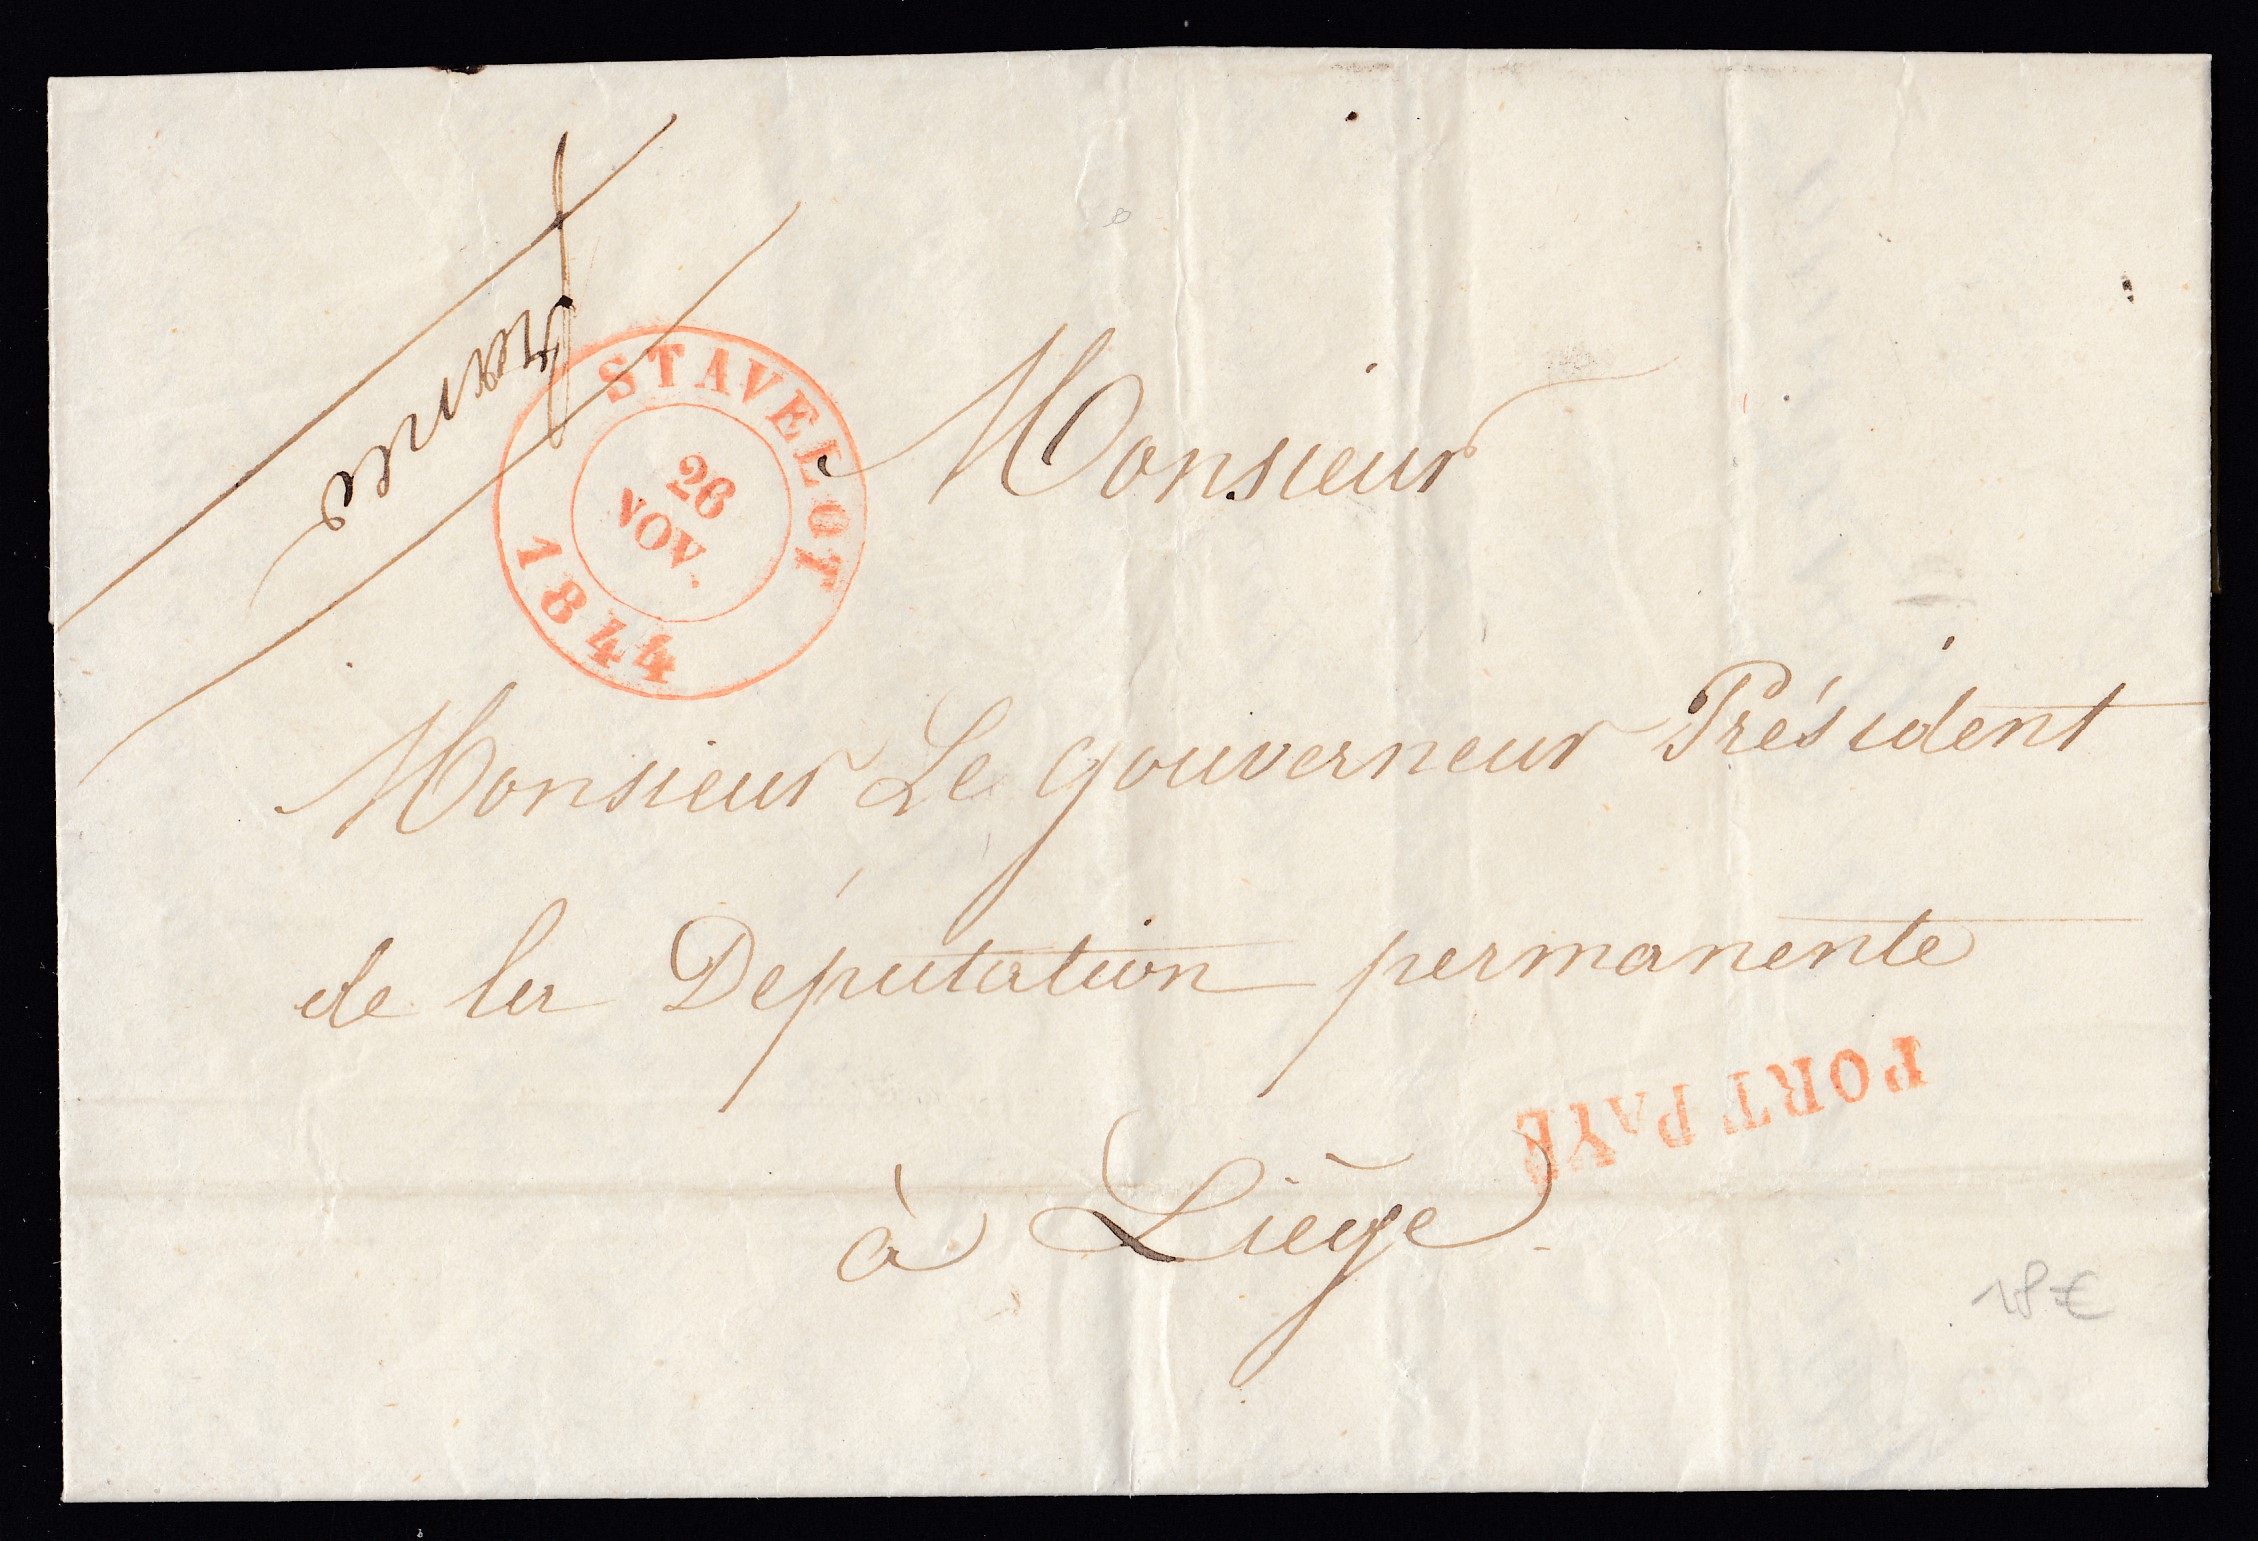 franco
STAVELOT
26
NOV.
1844
Monsieur
Monsieur Le gouverneur Président
de la Députation permanente
PORT PAYÉ
à Liége
18 €